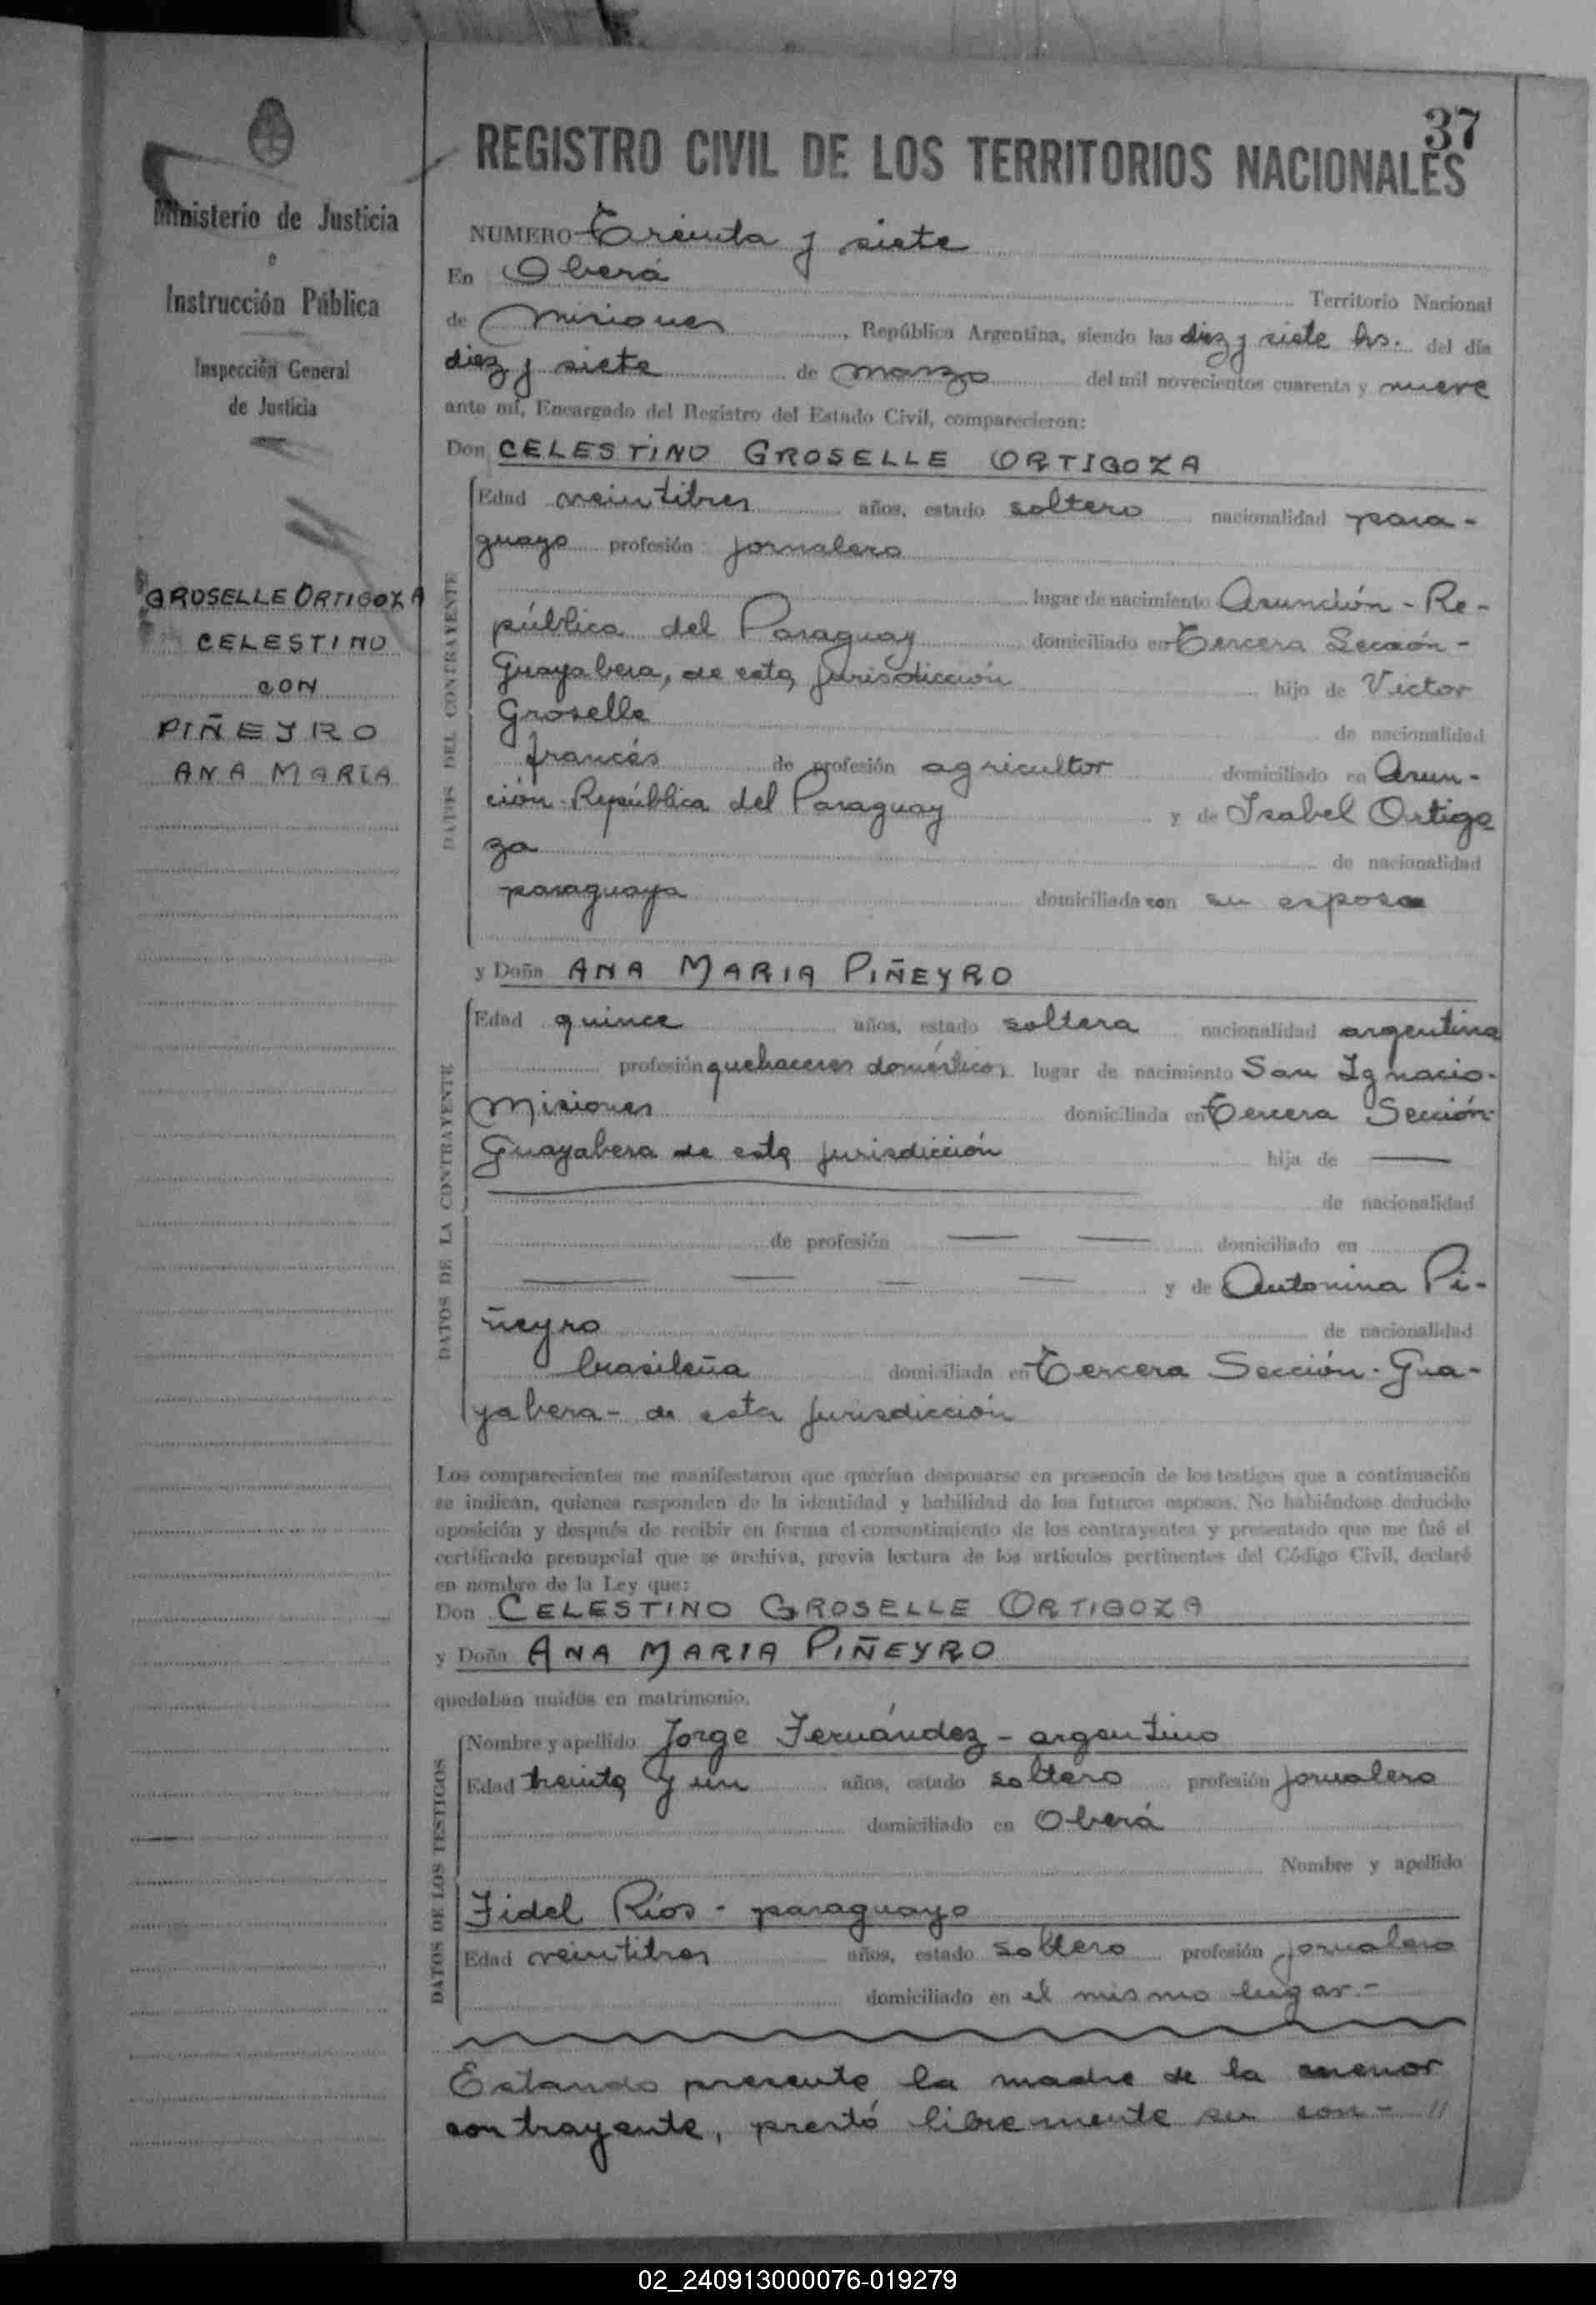 37
REGISTRO CIVIL DE LOS TERRITORIOS NACIONALES
Ministerio de Justicia
e
Instrucción Pública
Inspección General
de Justicia
GROSELLE ORTIGOZA
CELESTINO
CON
PIÑEYRO
ANA MARIA
NUMERO Treinta y siete
En Oberá Territorio Nacional
de Misiones, República Argentina, siendo las diez y siete hs. del día
diez y siete de marzo del mil novecientos cuarenta y nueve
ante mí, Encargado del Registro del Estado Civil, comparecieron:
Don CELESTINO GROSELLE ORTIGOZA
DATOS DEL CONTRAYENTE
Edad veintitres años, estado soltero nacionalidad para-
guayo profesión jornalero
lugar de nacimiento Asunción - Re-
pública del Paraguay domiciliado en Tercera Sección -
Guayabera, de esta jurisdicción hijo de Victor
Groselle de nacionalidad
francés de profesión agricultor domiciliado en Asun-
ción República del Paraguay y de Isabel Ortigo
za de nacionalidad
paraguaya domiciliada con su esposo
y Doña ANA MARIA PIÑEYRO
DATOS DE LA CONTRAYENTE
Edad quince años, estado soltera nacionalidad argentina
profesión quehaceres domésticos lugar de nacimiento San Ignacio-
Misiones domiciliada en Tercera Sección-
Guayabera de esta jurisdicción hija de —
de nacionalidad
de profesión — — domiciliado en
— — — — y de Antonina Pi-
ñeyro de nacionalidad
brasileña domiciliada en Tercera Sección - Gua-
yabera - de esta jurisdicción
Los comparecientes me manifestaron que querían desposarse en presencia de los testigos que a continuación
se indican, quienes responden de la identidad y habilidad de los futuros esposos. No habiéndose deducido
oposición y después de recibir en forma el consentimiento de los contrayentes y presentado que me fué el
certificado prenupcial que se archiva, previa lectura de los artículos pertinentes del Código Civil, declaré
en nombre de la Ley que:
Don CELESTINO GROSELLE ORTIGOZA
y Doña ANA MARIA PIÑEYRO
quedaban unidos en matrimonio.
DATOS DE LOS TESTIGOS
Nombre y apellido Jorge Fernández - argentino
Edad treinta y un años, estado soltero profesión jornalero
domiciliado en Oberá
Nombre y apellido
Fidel Ríos - paraguayo
Edad veintitres años, estado soltero profesión jornalero
domiciliado en el mismo lugar -
Estando presente la madre de la menor
contrayente, prestó libremente su con- //
02_240913000076-019279